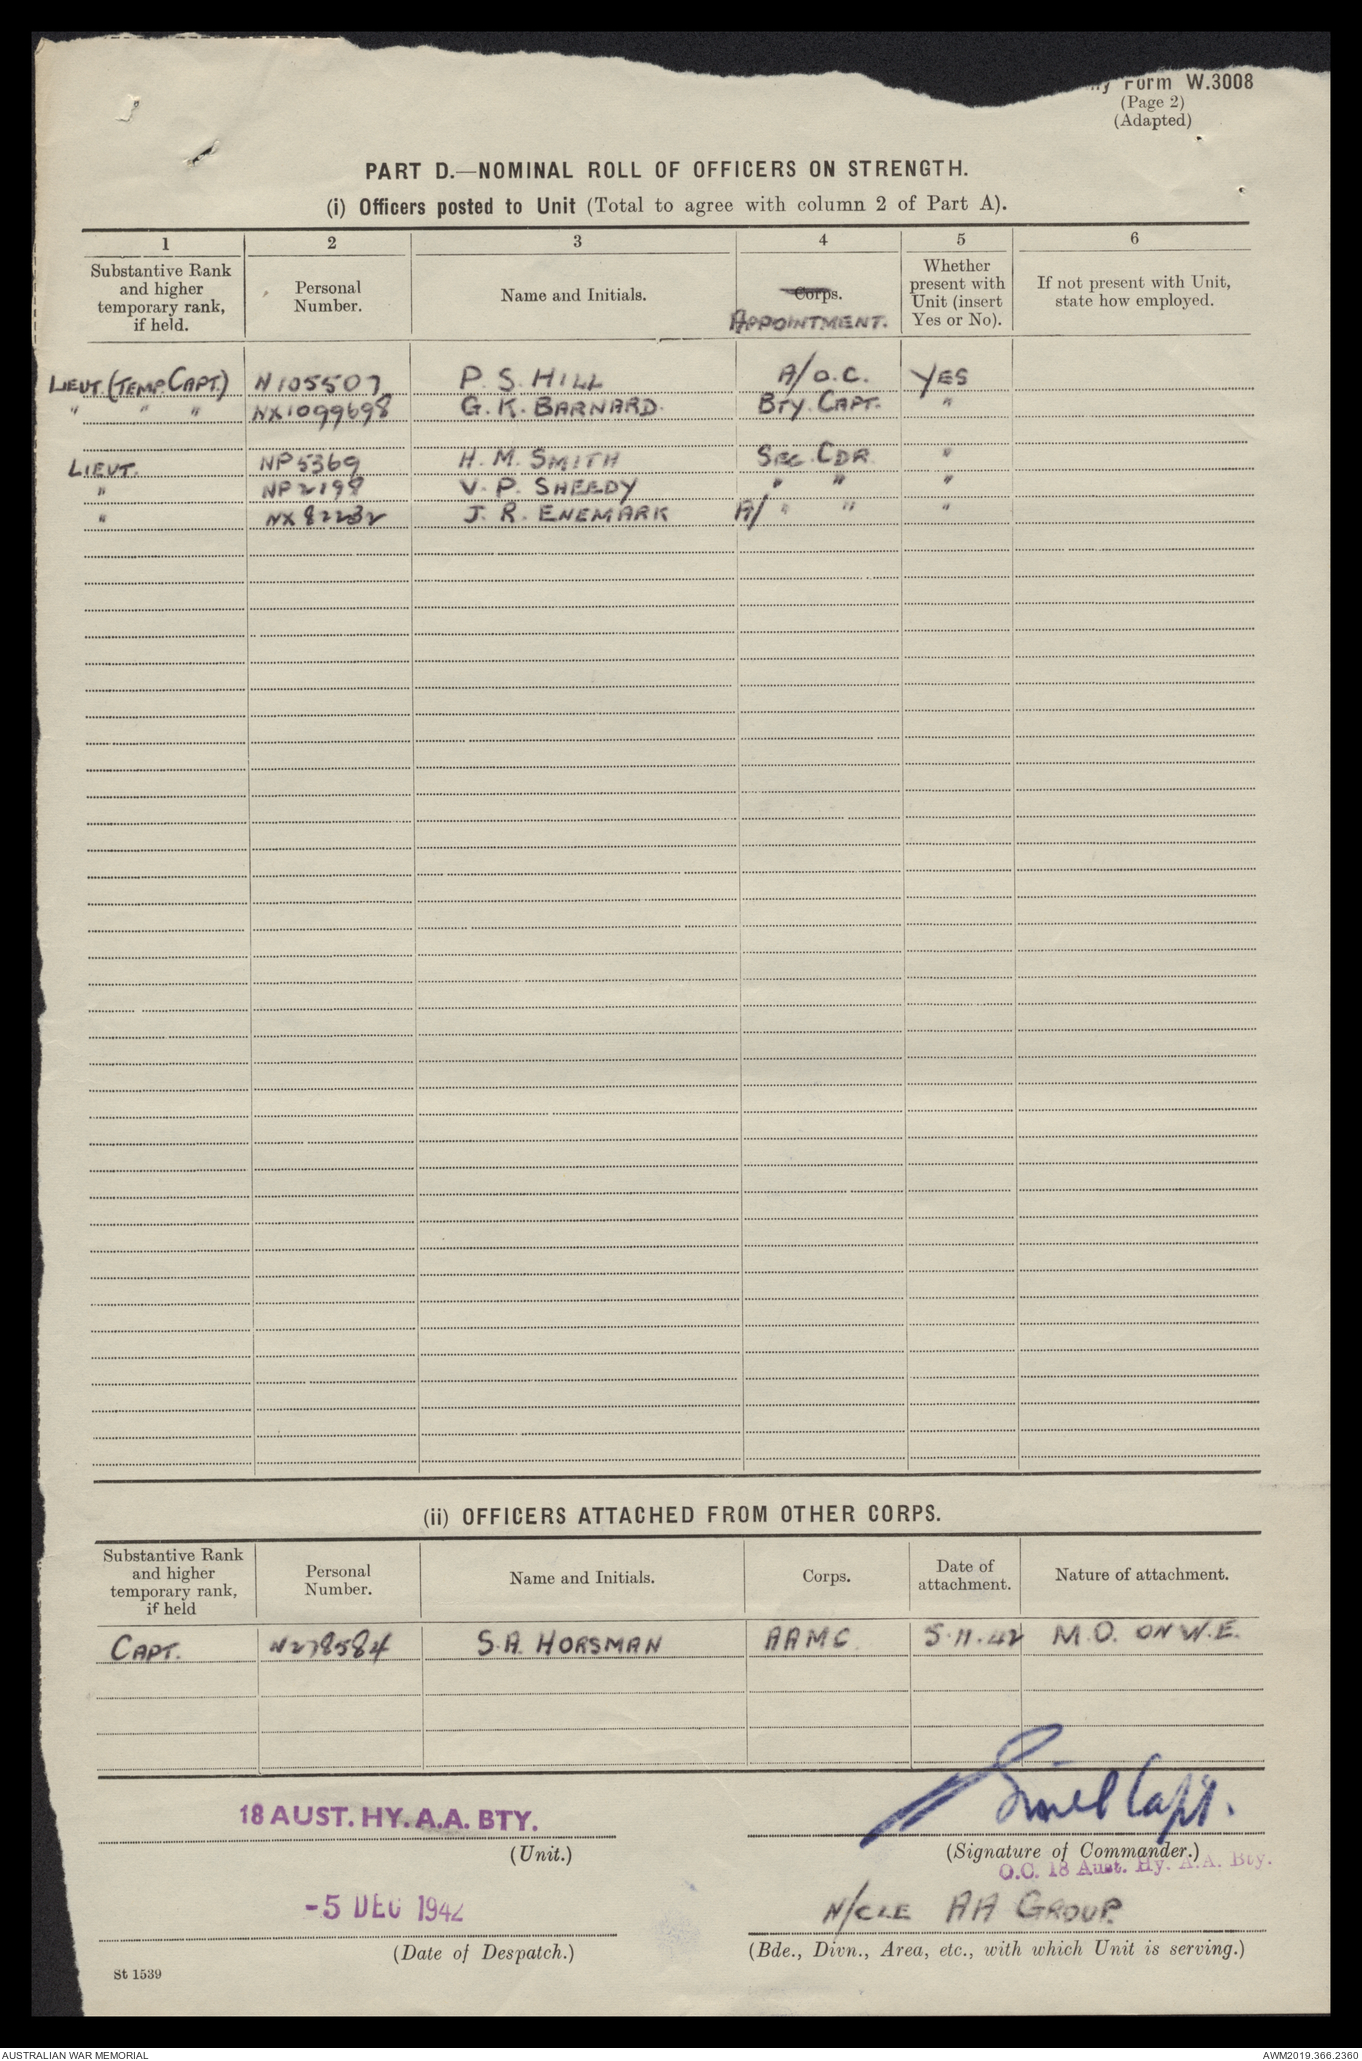 ny Form W.3008
(Page 2)
(Adapted)
PART D.—NOMINAL ROLL OF OFFICERS ON STRENGTH.
(i) Officers posted to Unit (Total to agree with column 2 of Part A).
1 2 3 4 5 6
Substantive Rank and higher temporary rank, if held. Personal Number. Name and Initials. Corps. APPOINTMENT. Whether present with Unit (insert Yes or No). If not present with Unit, state how employed.
LIEUT. (TEMP. CAPT.) N105507 P. S. HILL A/O.C. YES
" " " NX1099698 G. K. BARNARD. BTY. CAPT. "
LIEUT. NP5369 H. M. SMITH SEC. CDR "
" NP2198 V. P. SHEEDY " " "
" NX82232 J. R. ENEMARK A/ " " "
(ii) OFFICERS ATTACHED FROM OTHER CORPS.
Substantive Rank and higher temporary rank, if held Personal Number. Name and Initials. Corps. Date of attachment. Nature of attachment.
CAPT. N278584 S.A. HORSMAN AAMC 5.11.42 M.O. ON W.E.
Capt.
18 AUST. HY. A.A. BTY.
(Unit.) (Signature of Commander.)
O.C. 18 Aust. Hy. A.A. Bty.
-5 DEC 1942 N/CLE AA GROUP.
(Date of Despatch.) (Bde., Divn., Area, etc., with which Unit is serving.)
St 1539
AUSTRALIAN WAR MEMORIAL AWM2019.366.2360